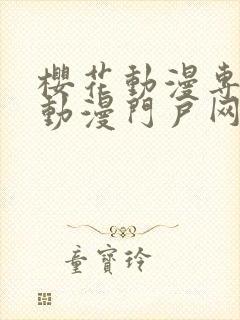 櫻花動漫專
動漫門戶网
童寶玲